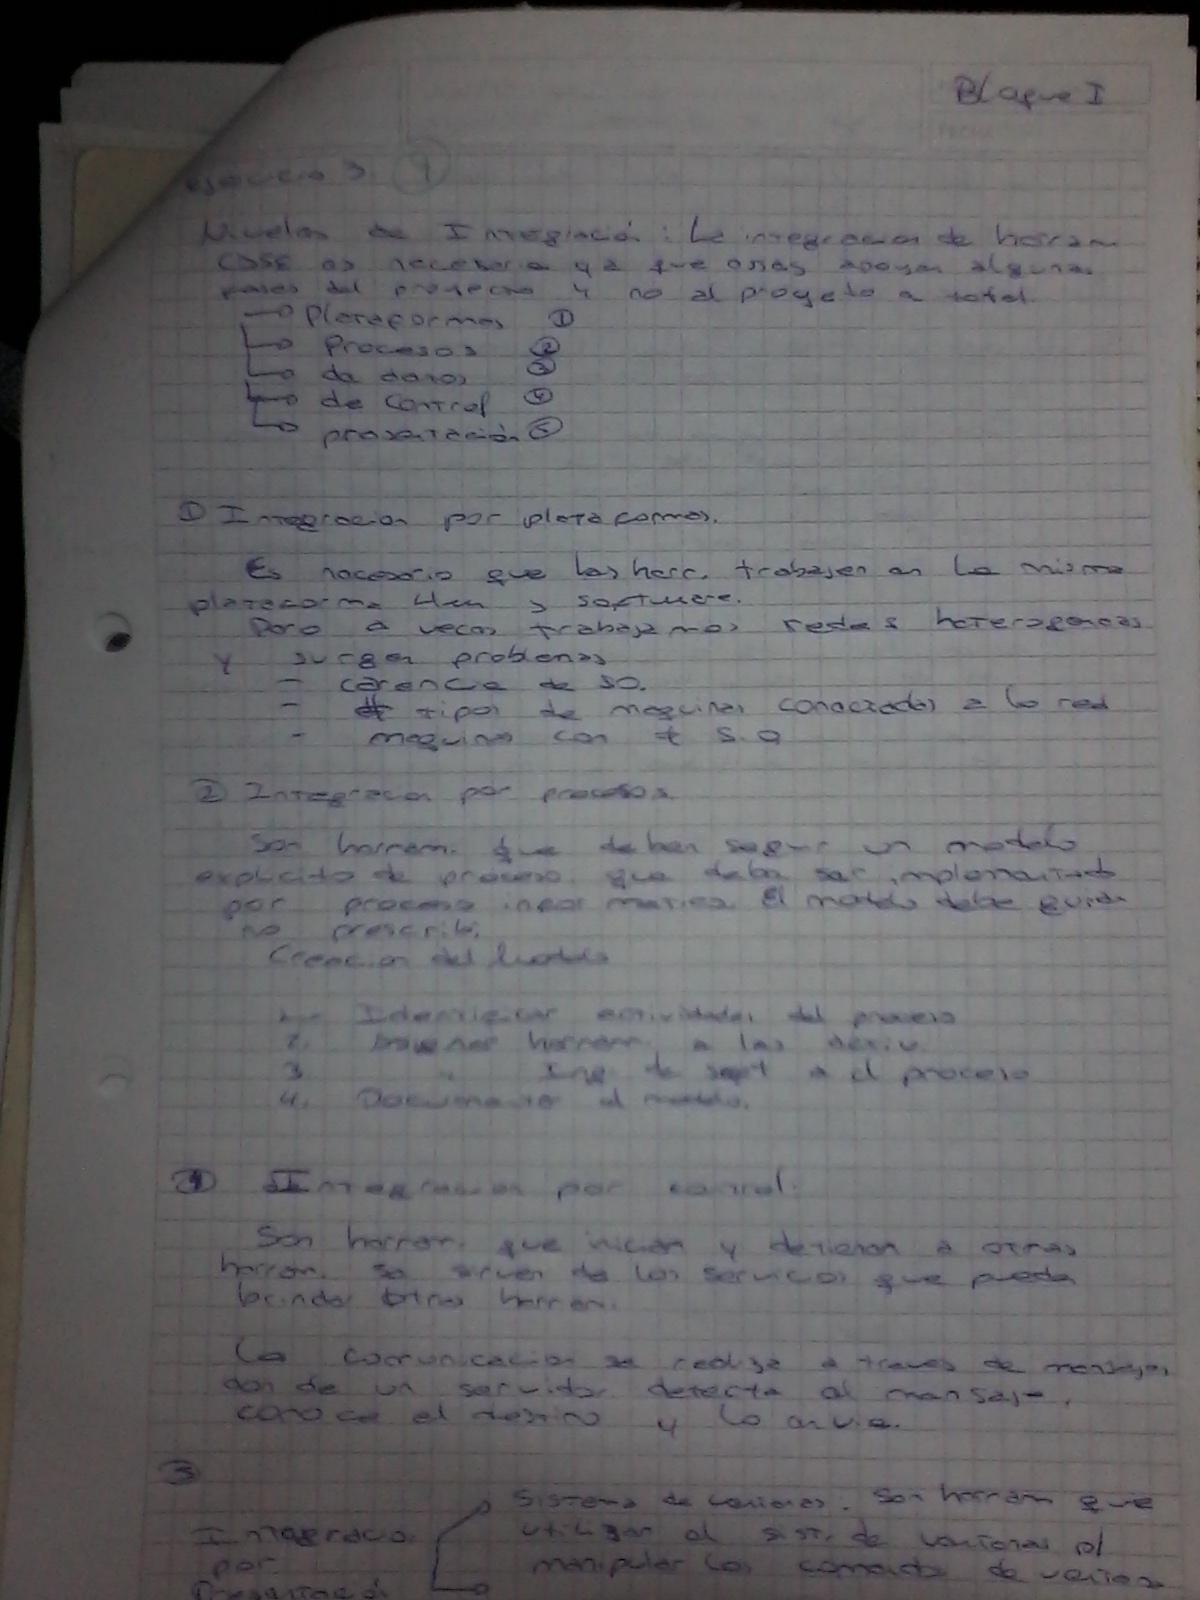 Bloque I
ejercicio 3. 9
Niveles de Integración: La integracion de herram
CASE es necesaria ya que estas apoyan algunas
fases del proyecto y no al proyecto a total.
Plataformas ①
Procesos ②
de datos ③
de control ④
presentación ⑤
① Integracion por plataformas.
Es necesario que las herr. trabajen en la misma
plataforma Hw y software.
Pero a veces trabajamos redes heterogeneas
y surgen problemas
- carencia de SO.
- ≠ tipos de maquinas conectadas a la red
- maquinas con ≠ S.O
② Integracion por procesos.
Son herram. que deben seguir un modelo
explicito de proceso, que debe ser implementado
por proceso informatico. El modelo debe guiar
no prescribir.
Creacion del Modelo
1.- Identificar actividades del proceso
2. herram. a las activ.
3. " Ing. de soft a el proceso
4. Documentar el modelo.
④ Integracion por control.
Son herram. que inician y detienen a otras
herram. se sirven de los servicios que pueda
brindar otras herram.
La comunicacion se realiza a traves de mensajes
donde un servidor detecta el mensaje,
conoce el destino y lo envia.
③
Integracio. por Presentació
Sistema de ventanas. Son herram que
utilizan el sist. de ventanas pl
manipular los comandos de ventana